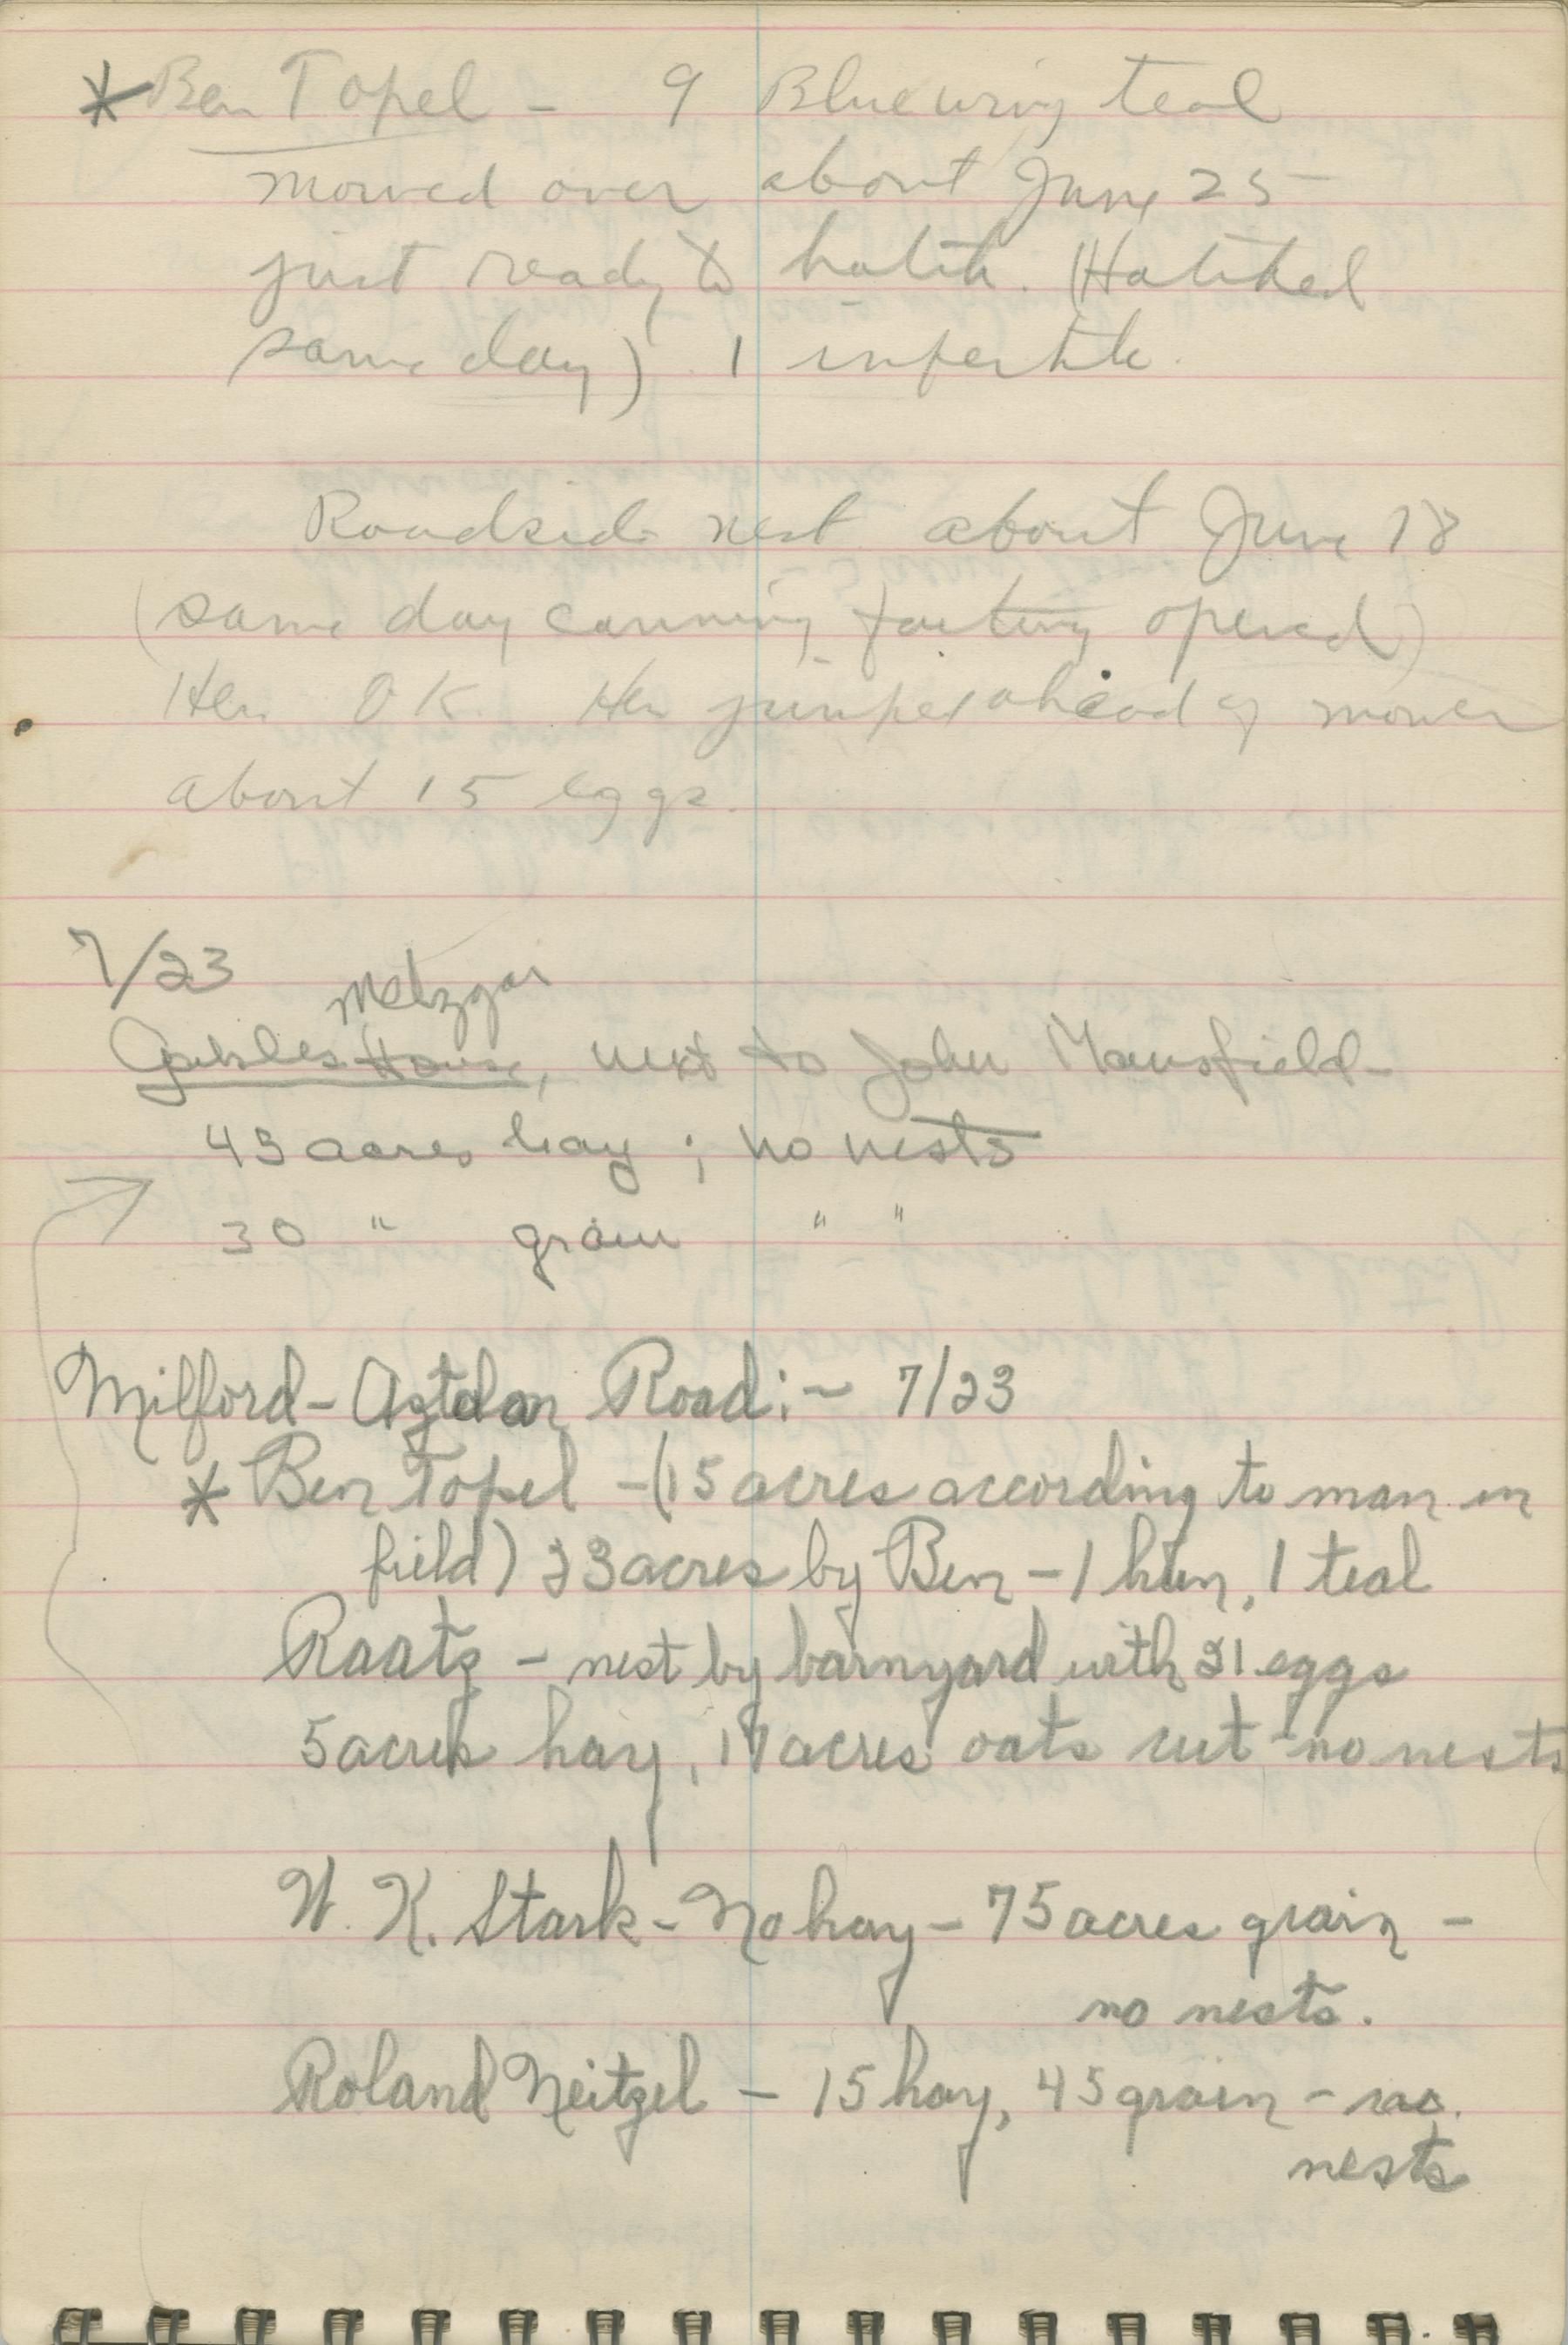 * Ben Topel - 9 Bluewing teal
mowed over about June 25
just ready to hatch. (Hatched
same day) 1 infertile.
Roadside nest about June 18
(same day canning factory opened)
Hen OK. Hen jumped ahead of mower
about 15 eggs.
7/23
Metzgar
House, next to John Mansfield-
45 acres hay ; no nests
30 " grain " "
Milford-Aztalan Road:- 7/23
* Ben Topel -(15 acres according to man in
field) 23 acres by Ben - 1 hun, 1 teal
Raatz - nest by barnyard with 21 eggs
5 acres hay, 17 acres oats cut - no nests
W. K. Stark - No hay - 75 acres grain -
no nests.
Roland Neitzel - 15 hay, 45 grain - no.
nests